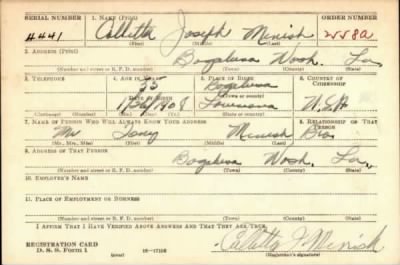 SERIAL NUMBER 1. NAME (Print) ORDER NUMBER
4441 Colletta Joseph Menish 2558a
(First) (Middle) (Last)
2. ADDRESS (Print)
Bogalusa Wash. La.
(Number and street or R. F. D. number) (Town) (County) (State)
3. TELEPHONE 4. AGE IN YEARS 5. PLACE OF BIRTH 6. COUNTRY OF CITIZENSHIP
Bogalusa
DATE OF BIRTH
1908 Louisiana
7. NAME OF PERSON WHO WILL ALWAYS KNOW YOUR ADDRESS 8. RELATIONSHIP OF THAT PERSON
Mr Tony Menish Bro.
(Mr., Mrs., Miss) (First) (Middle) (Last)
9. ADDRESS OF THAT PERSON
Bogalusa Wash. La.
(Number and street or R. F. D. number) (Town) (County) (State)
10. EMPLOYER'S NAME
11. PLACE OF EMPLOYMENT OR BUSINESS
(Number and street or R. F. D. number) (Town) (County) (State)
I AFFIRM THAT I HAVE VERIFIED ABOVE ANSWERS AND THAT THEY ARE TRUE.
REGISTRATION CARD
D. S. S. Form 1 (over) Colletta J Menish
(Registrant's signature)